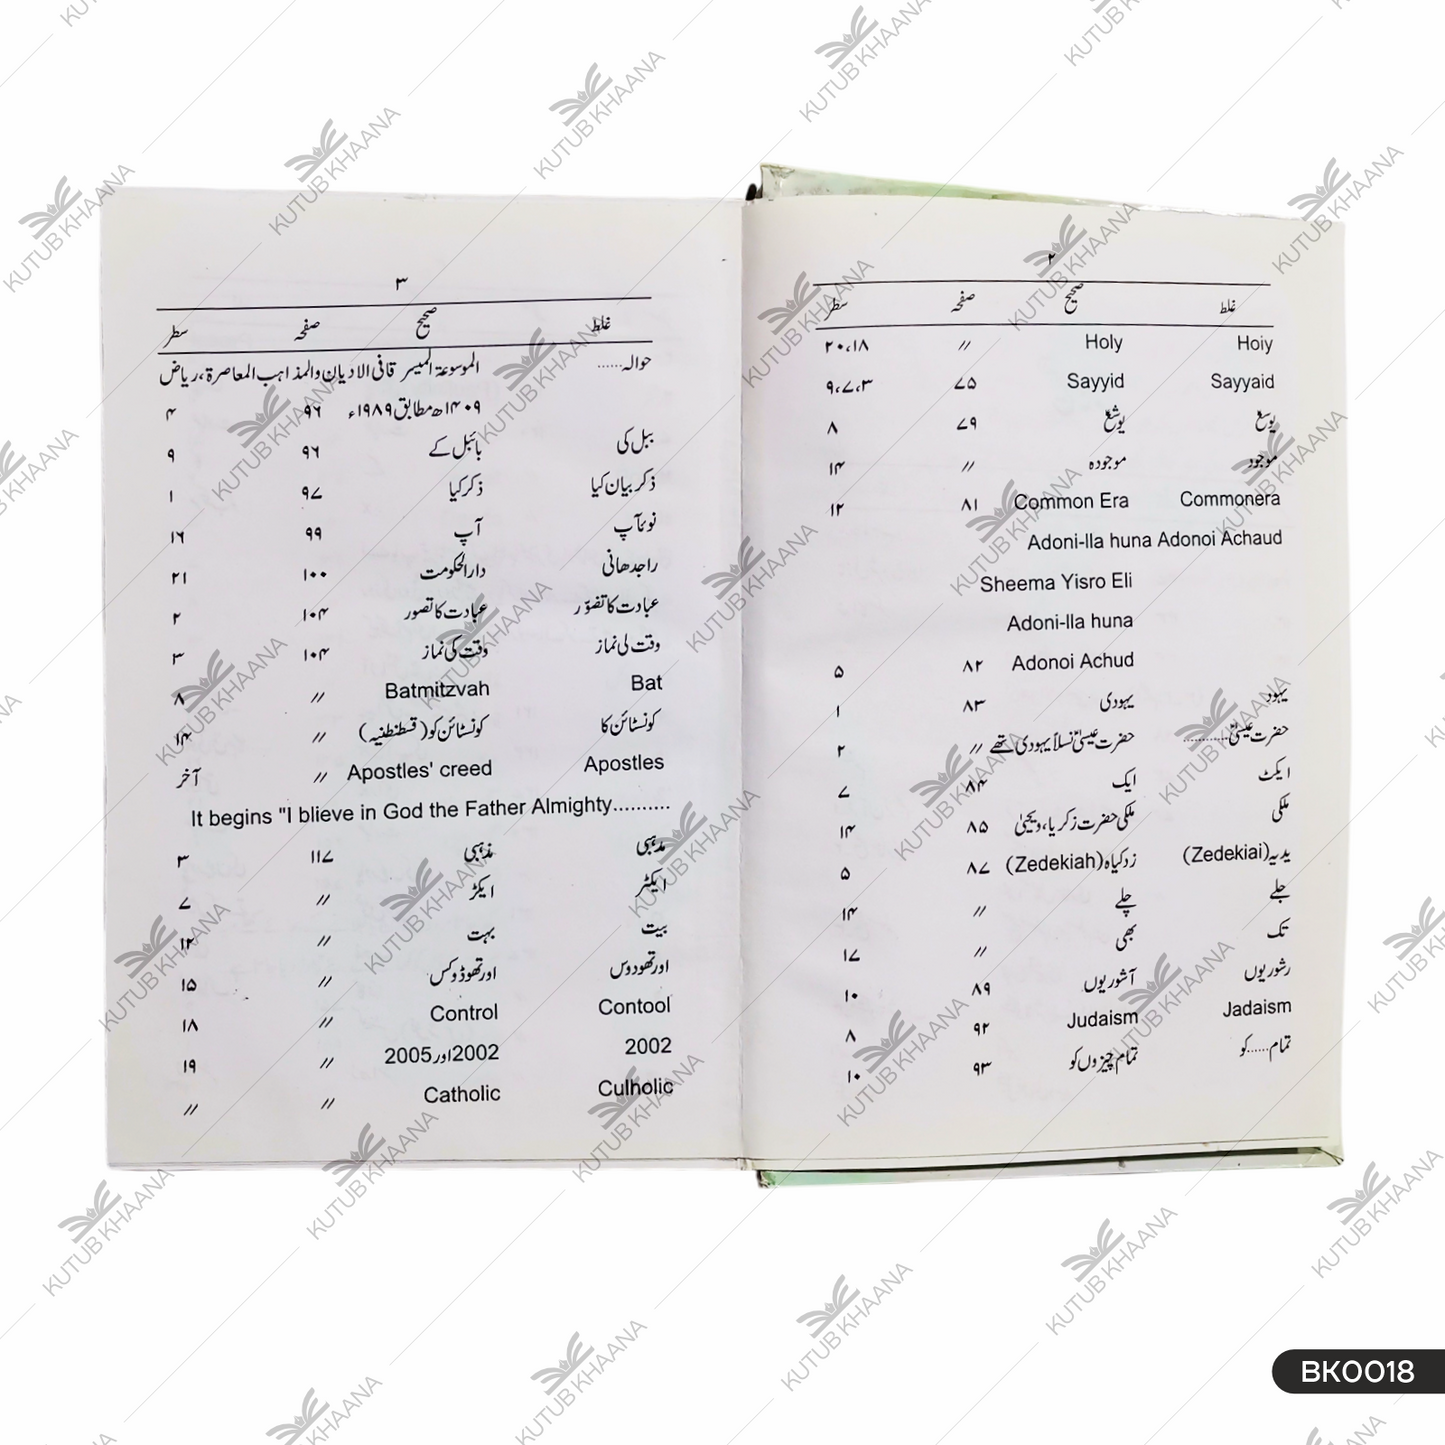 ۲
غلط صحیح صفحہ سطر
Hoiy Holy // ۲۰،۱۸
Sayyaid Sayyid ۷۵ ۹،۷،۳
یوسع یوشع ۷۹ ۸
موجود موجودہ // ۱۴
Commonera Common Era ۸۱ ۱۲
Adoni-lla huna Adonoi Achaud
Sheema Yisro Eli
Adoni-lla huna
Adonoi Achud ۸۲ ۵
یہود یہودی ۸۳ ۱
حضرت عیسیٰؑ............ حضرت عیسیٰؑ نسلاً یہودی تھے // ۲
ایکٹ ایک ۸۴ ۷
ملکی ملکی حضرت زکریا، ویحییٰ ۸۵ ۱۴
یدیہ(Zedekiai) زدکیاہ(Zedekiah) ۸۷ ۵
جلے چلے // ۱۴
تک بھی // ۱۷
رشوریوں آشوریوں ۸۹ ۱۰
Jadaism Judaism ۹۲ ۸
تمام.....کو تمام چیزوں کو ۹۳ ۱۰
۳
غلط صحیح صفحہ سطر
حوالہ...... الموسوعۃ المیسر قافی الادیان والمذاہب المعاصرۃ، ریاض
۱۴۰۹ھ مطابق ۱۹۸۹ء ۹۶ ۴
ببل کی بائبل کے ۹۶ ۹
ذکر بیان کیا ذکر کیا ۹۷ ۱
نوئآپ آپ ۹۹ ۱۶
راجدھانی دارالحکومت ۱۰۰ ۲۱
عبادت کا تفوّر عبادت کا تصور ۱۰۴ ۲
وقت لی نماز وقت کی نماز ۱۰۴ ۳
Bat Batmitzvah // ۸
کونسٹائن کا کونسٹائن کو(قسطنطنیہ) // ۱۴
Apostles Apostles' creed // آخر
It begins "I blieve in God the Father Almighty..........
مدہبی مذہبی ۱۱۷ ۳
ایکٹر ایکڑ // ۷
بیت بہت // ۱۲
اورتھودوس اورتھوڈوکس // ۱۵
Contool Control // ۱۸
2002 2002اور2005 // ۱۹
Culholic Catholic // //
KUTUB KHAANA
BK0018